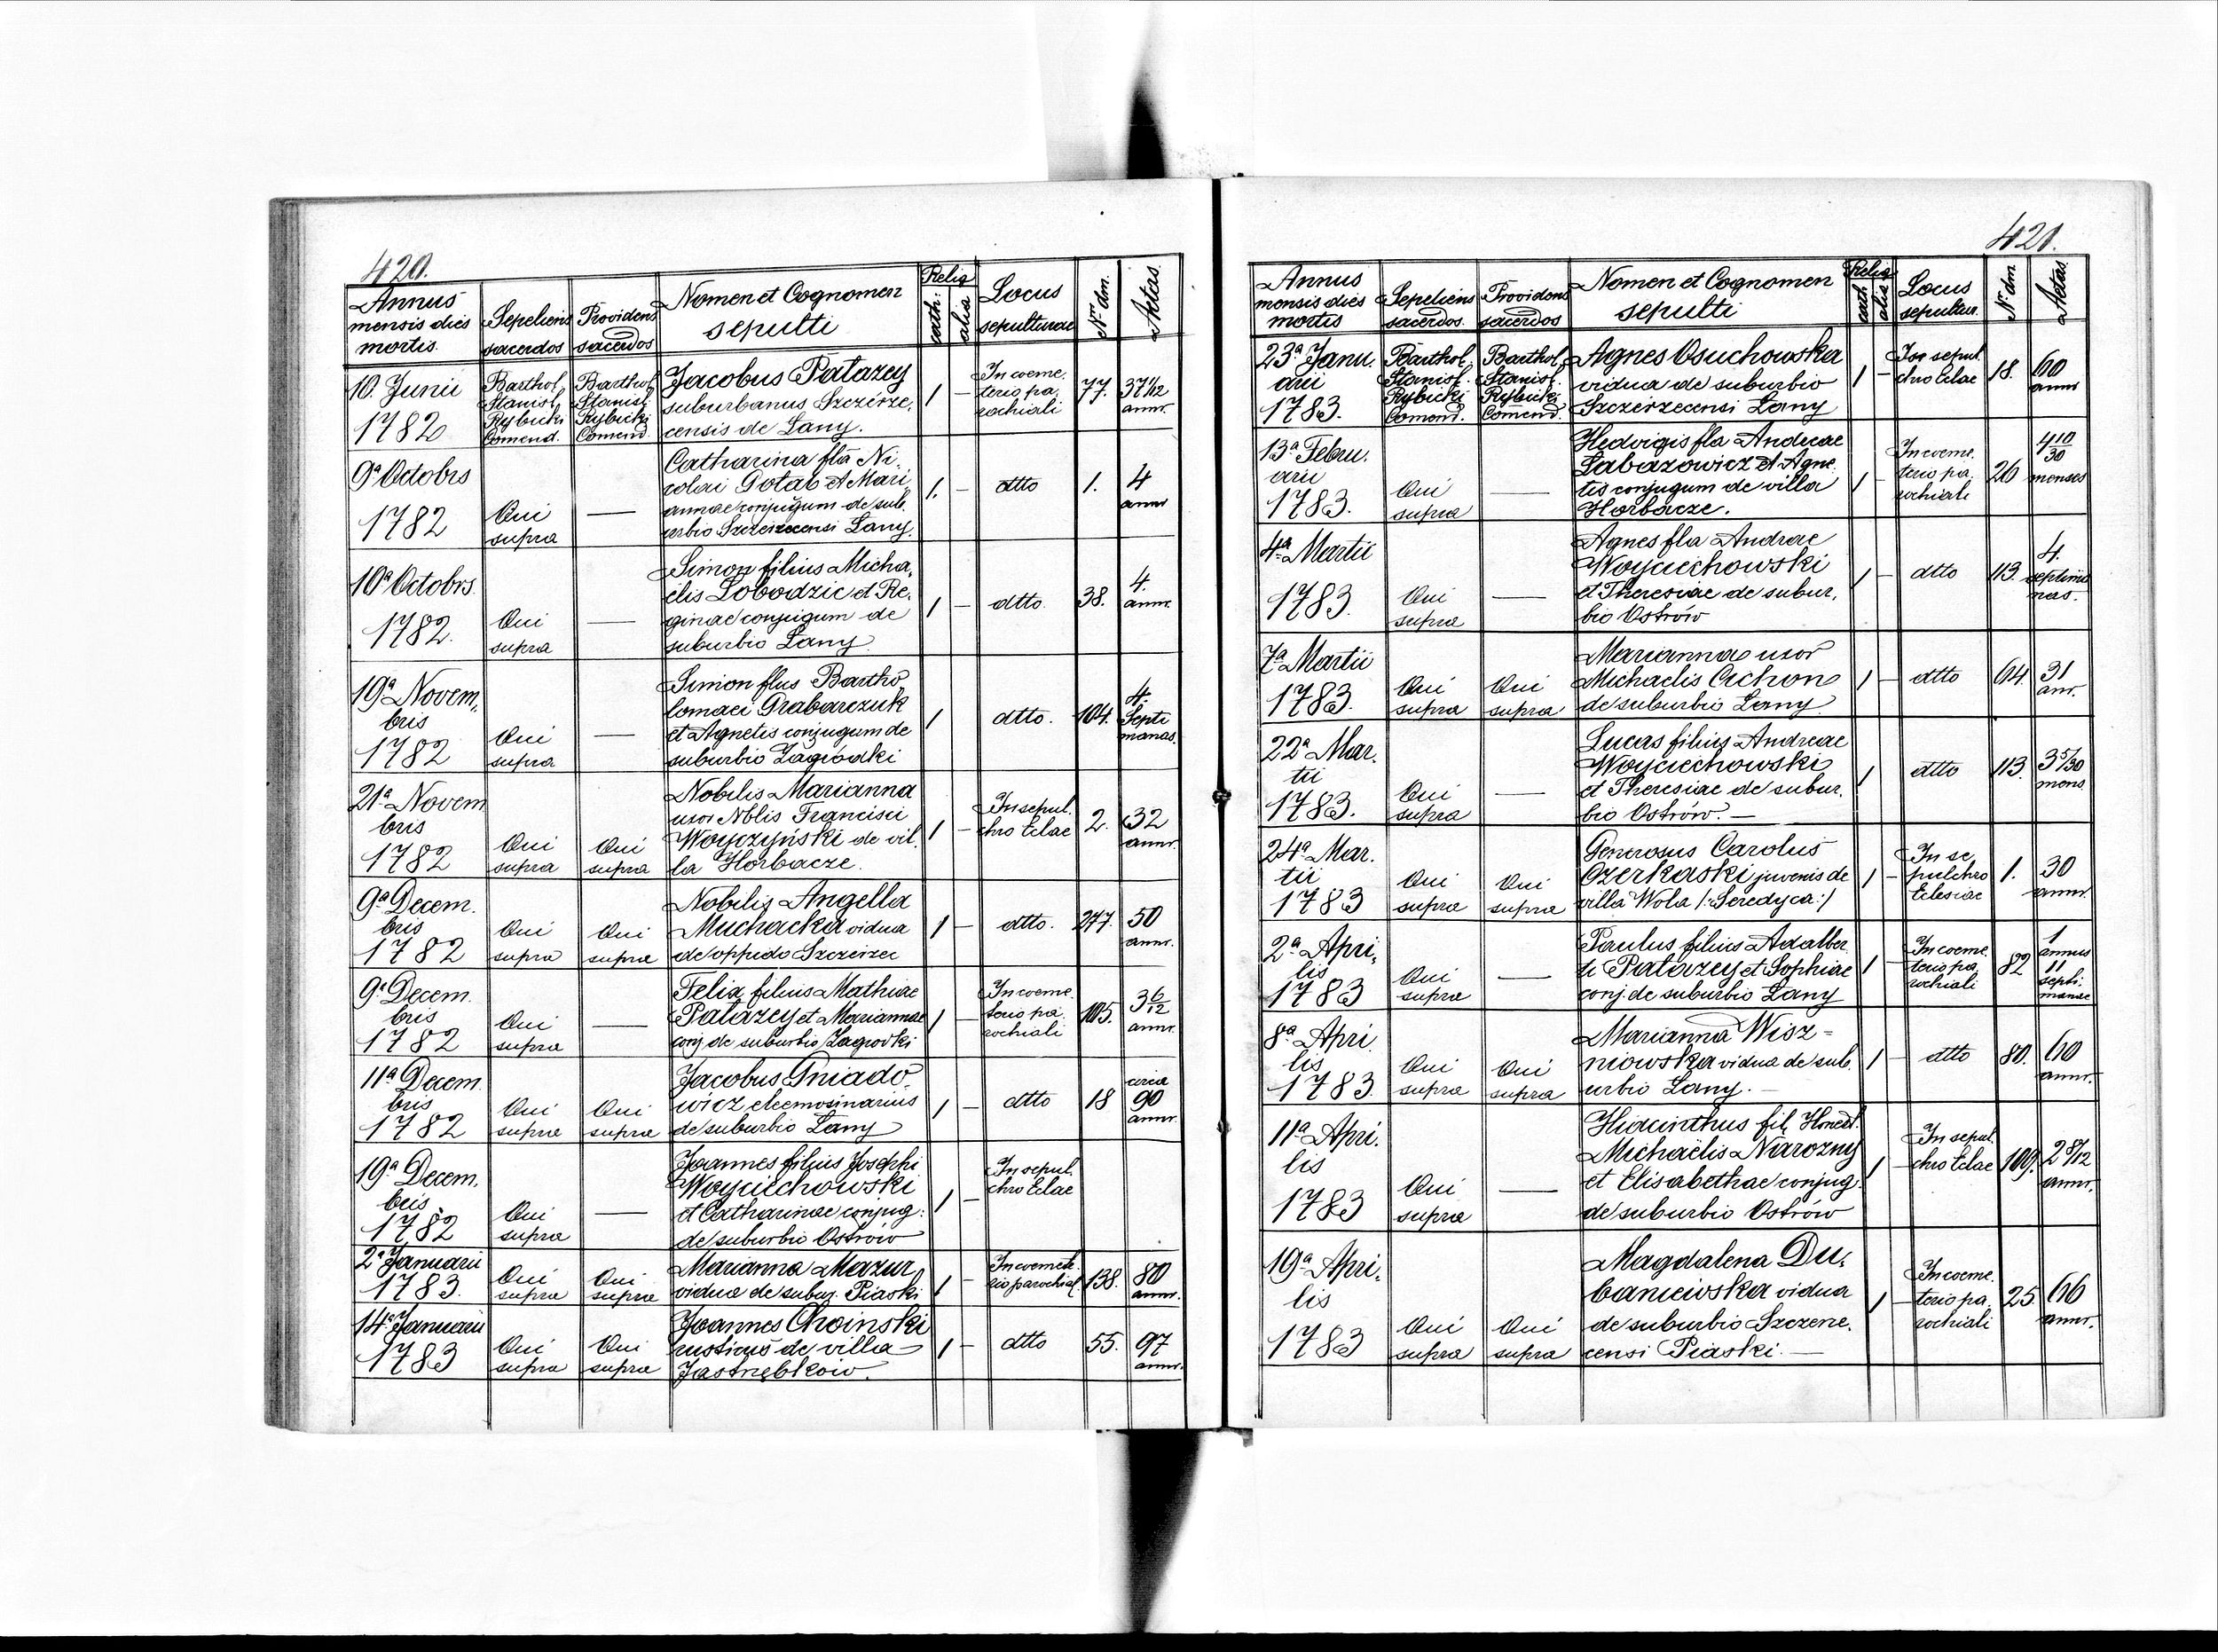 420.
Annus mensis dies mortis
Sepeliens sacerdos
Providens sacerdos
Nomen et Cognomen sepulti
Relig cath: alia
Locus sepulturae
Nr dm.
Aetas.
10. Junii 1782
Barthol. Stanisl. Rybicki Comend.
Barthol. Stanisl. Rybicki Comend.
Jacobus Patazey
suburbanus Szczérze,
censis de Lany.
1 –
In coeme.
terio pa,
rochiali
77.
37 1/12
annr.
9ª Octobrs
1782
Qui
supra
—
Catharina fla Ni,
colai Gotab et Mari,
annae conjugum de sub,
urbio Szczerzecensi Lany.
1. –
dtto
1.
4
annr
10ª Octobrs.
1782.
Qui
supra
—
Simon filius Micha,
elis Lobodzic et Re,
ginae conjugum de
suburbio Lany
1 –
dtto.
38.
4.
annr.
19ª Novem,
bris
1782
Qui
supra
—
Simon flus Bartho
lomaei Grabarczuk
et Agnetis conjugum de
suburbio Zagródki
1
dtto.
104.
4.
Septi
manas.
21ª Novem
bris
1782
Qui
supra
Qui
supra
Nobilis Marianna
uxor Nblis Francisci
Woyczyński de vil.
la Horbacze.
1 –
In sepul.
chro Eclae
2.
32
annr.
9ª Decem.
bris
1782
Qui
supra
Qui
supra
Nobilis Angella
Muchacka vidua
de oppido Szczerzec
1 –
dtto.
247.
50
annr.
9ª Decem.
bris
1782
Qui
supra
—
Felix filius Mathiae
Patazey et Mariannae
conj de suburbio Zagrodki
1 –
In coeme.
terio pa.
rochiali
105.
3 6/12
annr.
11ª Decem.
bris
1782
Qui
supra
Qui
supra
Jacobus Gniado,
wicz eleemosinarius
de suburbio Lany
1 –
dtto
18
circa
90
annr.
19ª Decem,
bris.
1782
Qui
supra
—
Joannes filius Josephi
Woyciechowski
et Catharinae conjug:
de suburbio Ostrów
1 –
In sepul.
chro Eclae
2ª Januarii
1783.
Qui
supra
Qui
supra
Marianna Mazur
vidua de subur. Piaski
1 –
In coemete
rio parochial
138.
80
annr.
14ª Januarii
1783
Qui
supra
Qui
supra
Joannes Choinski
rusticus de villa
Jastrzębków.
1 –
dtto
55.
97
annr.
421.
Annus mensis dies mortis
Sepeliens sacerdos.
Providens sacerdos
Nomen et Cognomen sepulti
Relig cath alia
Locus sepultur.
Nr dm
Aetas.
23ª Janu.
arii
1783.
Barthol. Stanisl. Rybicki Comend.
Barthol. Stanisl. Rybicki Comend.
Agnes Osuchowska
vidua de suburbio
Szczérzecensi Lany
1 –
In sepul.
chro Eclae
18.
60
annr
13ª Febru.
arii
1783.
Qui
supra
—
Hedvigis fla Andreae
Labazowicz et Agne.
tis conjugum de villa
Horbacze.
1 –
In coeme.
terio pa,
rochiali
26
4 10/30
menses
4ª Martii
1783.
Qui
supra
—
Agnes fla Andreae
Woyciechowski
et Theresiae de subur,
bio Ostrów
1 –
dtto
113.
4.
septima
nas.
7ª Martii
1783.
Qui
supra
Qui
supra
Marianna uxor
Michaelis Cichon
de suburbio Lany
1 –
dtto
64.
31
anr.
22ª Mar.
tii
1783.
Qui
supra
—
Lucas filius Andreae
Woyciechowski
et Theresiae de subur.
bio Ostrów. —
1
dtto
113.
3 5/30
mens.
24ª Mar.
tii
1783
Qui
supra
Qui
supra
Generosus Carolus
Czerkaski juvenis de
villa Wola /:Seredyca:/
1 –
In se,
pulchro
Eclesiae
1.
30
annr.
2ª Apri,
lis
1783
Qui
supra
—
Paulus filius Adalber
ti Patazey et Sophiae
conj. de suburbio Lany
1 –
In coeme.
terio pa,
rochiali
82
1
annus
11
septi.
manae
8ª Apri
lis
1783.
Qui
supra
Qui
supra
Marianna Wisz=
niowska vidua de sub.
urbio Lany. —
1 –
dtto
80.
60
annr.
11ª Apri.
lis
1783
Qui
supra
—
Hiacinthus fil, Honest.
Michaëlis Narozny
et Elisabethae conjug.
de suburbio Ostrów
1 –
In sepul.
chro Eclae
109.
2 8/12
annr.
19ª Apri,
lis
1783
Qui
supra
Qui
supra
Magdalena Du,
baniewska vidua
de suburbio Szczerze.
censi Piaski. —
1 –
In coeme.
terio pa,
rochiali
25.
66
annr.